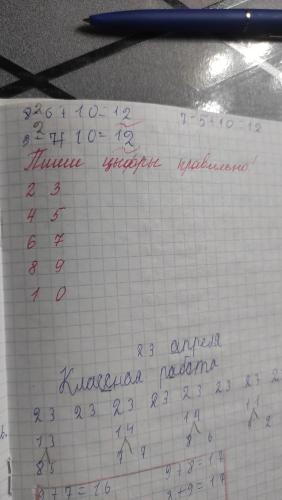 8-6+10=12 7-5+10=12
9-7+10=12
Пиши цыфры правильно!
2 3
4 5
6 7
8 9
1 0
23 апреля
Классная работа
23 23 23 23 23 23 23 2
13 14 14 11
8 5 7 7 8 6 9 2
9+7=16 9+8=17
8+9=17